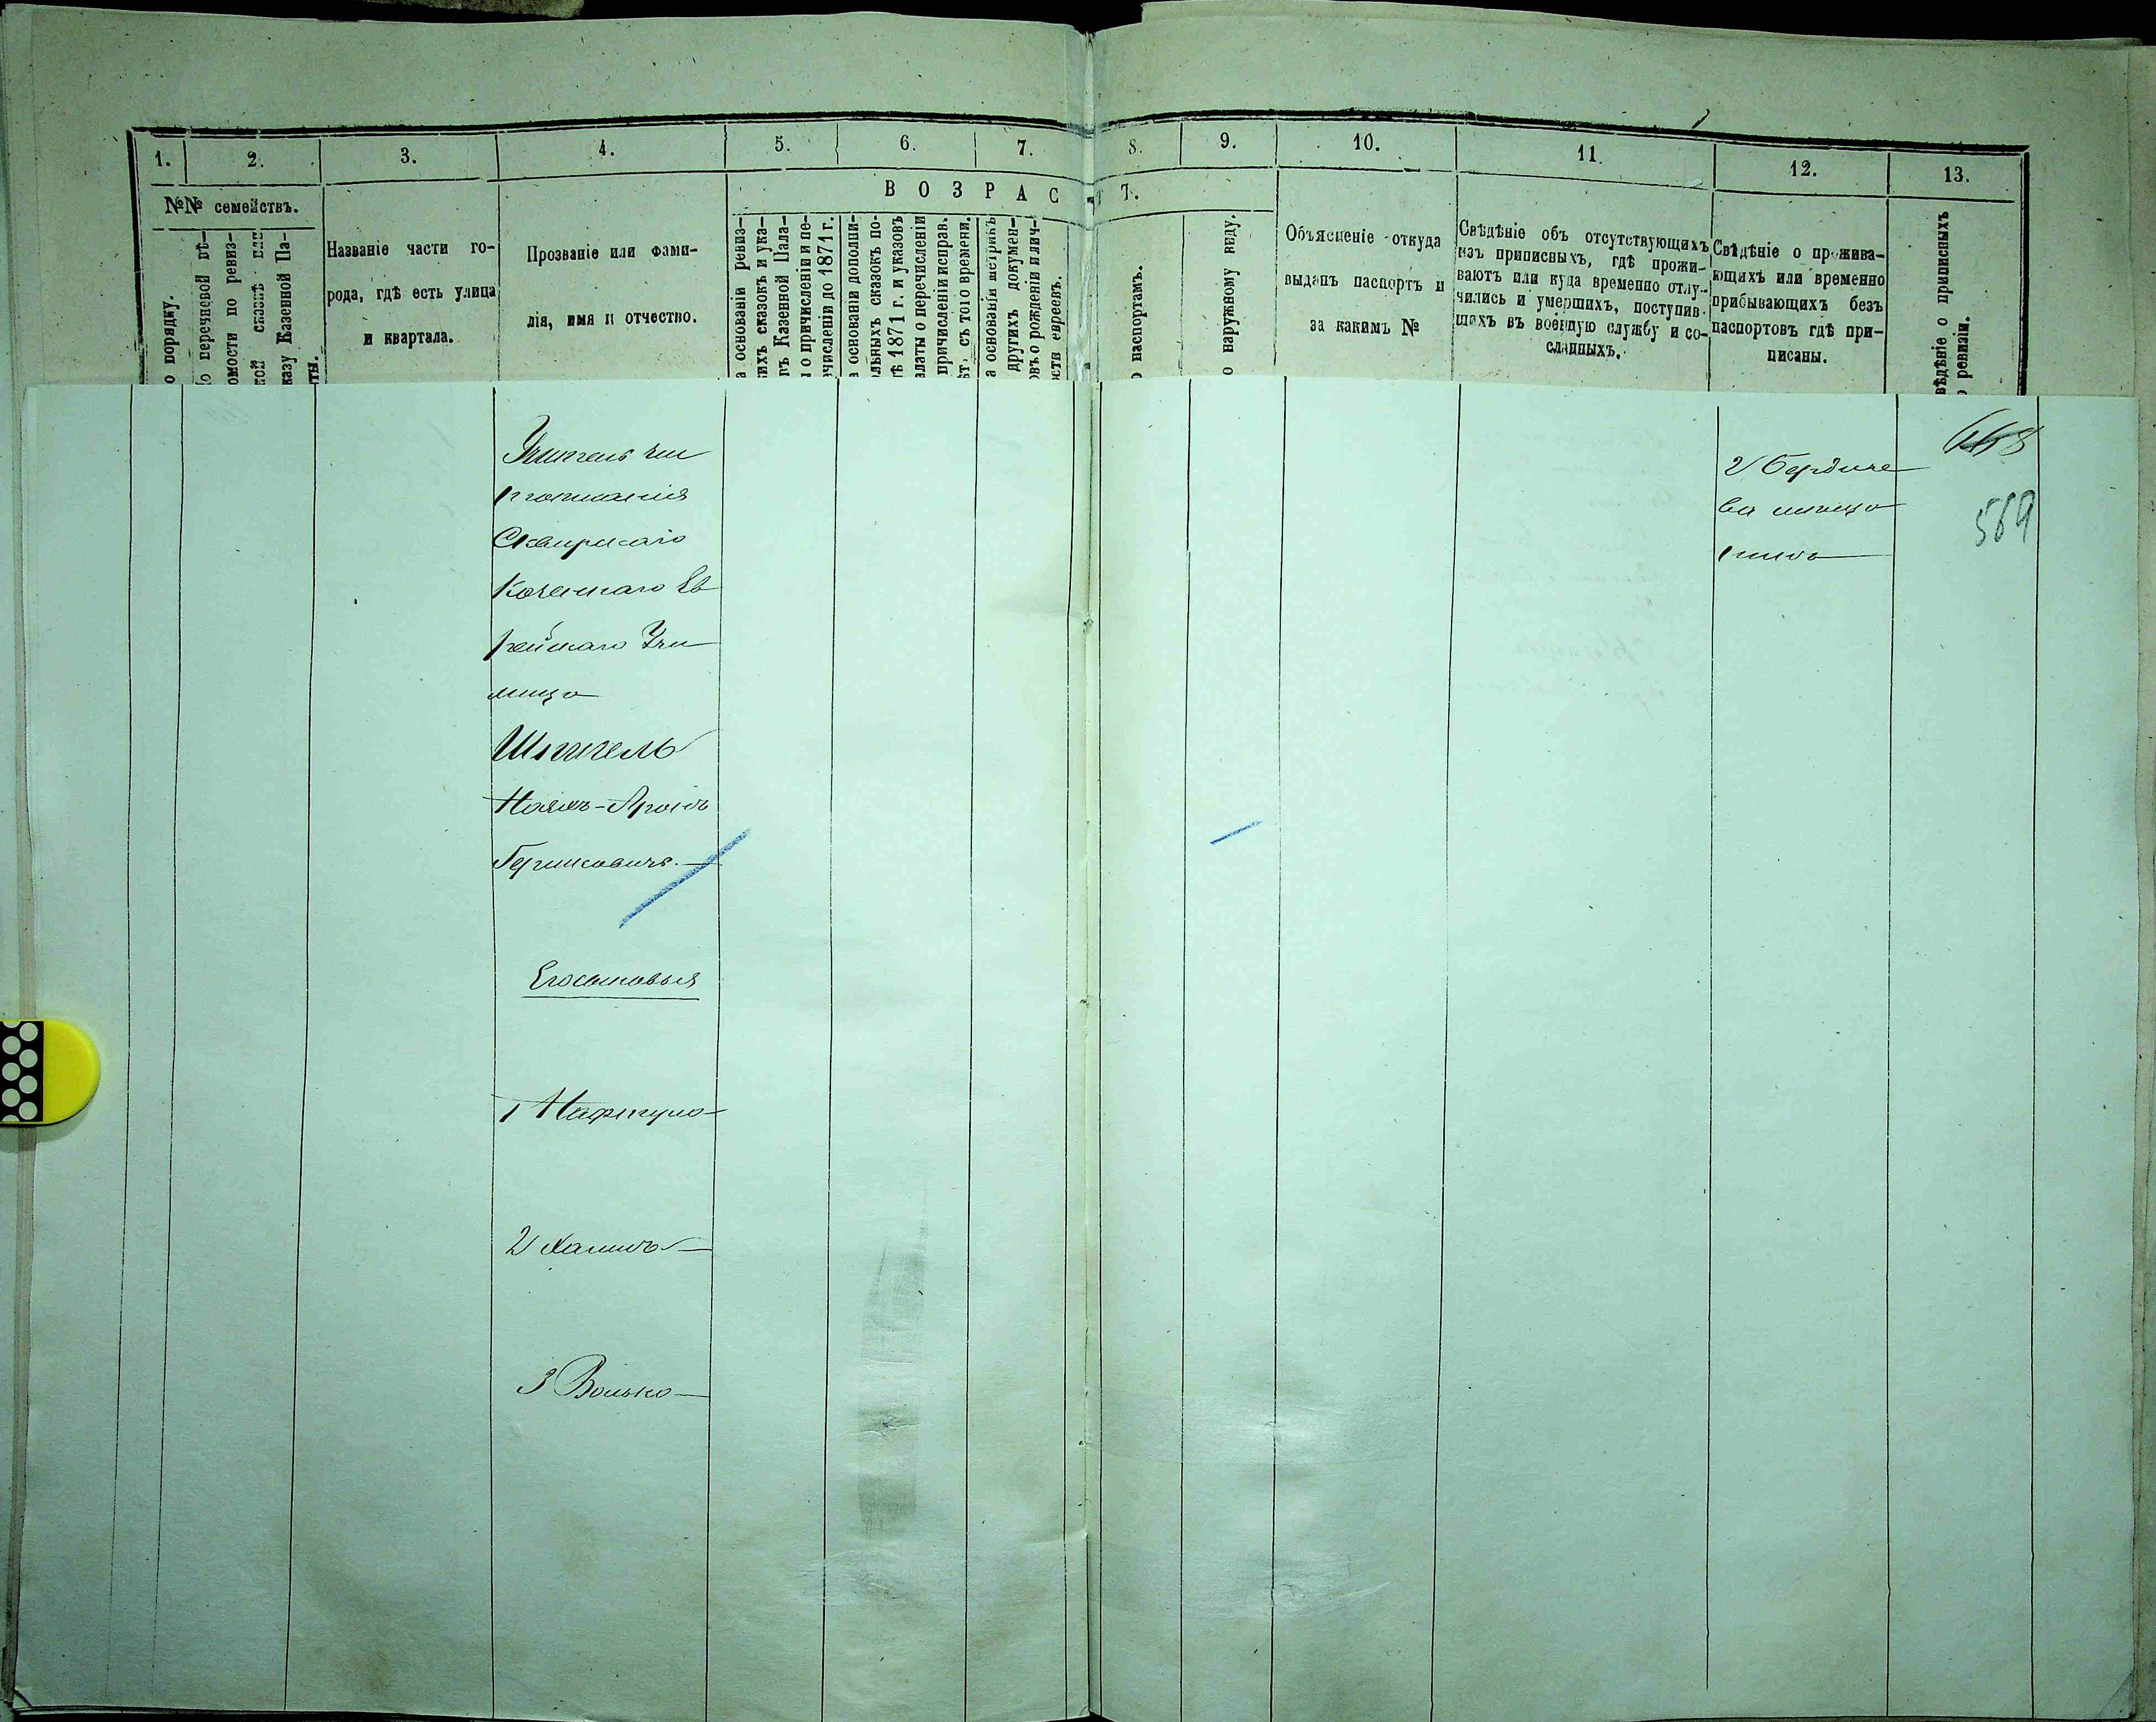 1.
2.
3.
4.
5.
6.
7.
8.
9.
10.
11.
12.
13.
№№ семействъ.
В О З Р А С Т Ъ.
о порядку.
о перечневой вѣ-
омости по ревиз-
кой сказкѣ или
казу Казенной Па-
ты.
Названіе части го-
рода, гдѣ есть улица
и квартала.
Прозваніе или фами-
лія, имя и отчество.
а основаніи ревиз-
ихъ сказокъ и ука-
въ Казенной Пала-
ы о причисленіи и пе-
ечисленіи до 1871 г.
а основаніи дополни-
льныхъ сказокъ по-
тѣ 1871 г. и указовъ
алаты о перечисленіи
причисленіи исправ.
ѣт. съ того времени.
а основаніи метрикъ
другихъ докумен-
овъ о рожденіи и лич-
ости евреевъ.
о паспортамъ.
о наружному виду.
Объясненіе откуда
выданъ паспортъ и
за какимъ №
Свѣдѣніе объ отсутствующихъ
изъ приписныхъ, гдѣ прожи-
ваютъ или куда временно отлу-
чились и умершихъ, поступив-
шихъ въ военную службу и со-
сланныхъ.
Свѣдѣніе о прожива-
ющихъ или временно
прибывающихъ безъ
паспортовъ гдѣ при-
писаны.
вѣдѣніе о приписныхъ
о ревизіи.
Учитель чи
стописанія
Сквирскаго
Казеннаго Ев
рейскаго Учи
лища
Шпигель
Гершковичъ.
Его сыновья
1 Нафтула
2 Хаимъ
3 Волько
г Бердиче
ва мѣща
нинъ
569